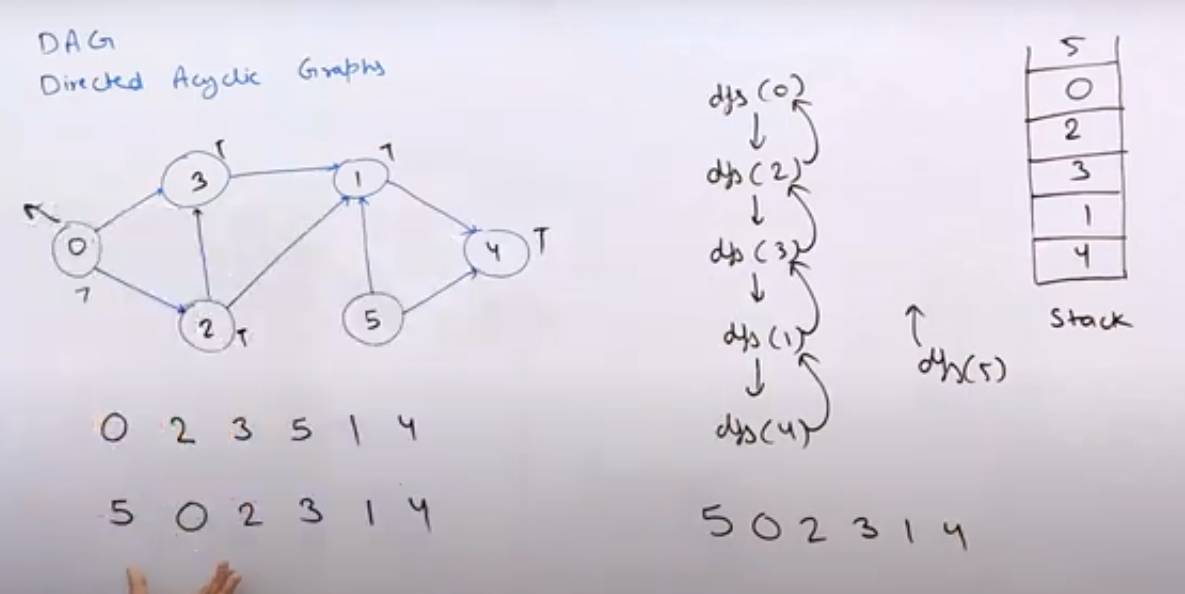 DAG
Directed Acyclic Graphs
3 T
1 T
0 T
4 T
2 T
5
0 2 3 5 1 4
5 0 2 3 1 4
dfs(0)
dfs(2)
dfs(3)
dfs(1)
dfs(4)
dfs(5)
5
0
2
3
1
4
Stack
5 0 2 3 1 4